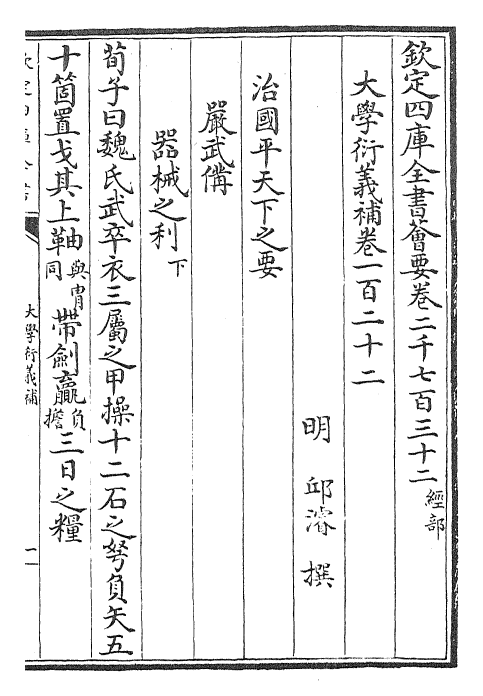 欽定四庫全書薈要卷二千七百三十二 經部
大學衍義補卷一百二十二
明 邱濬 撰
治國平天下之要
嚴武備
器械之利 下
荀子曰魏氏武卒衣三屬之甲操十二石之弩負矢五
十箇置戈其上𩊄與胄同帶劍贏負擔三日之糧
大學衍義補
一